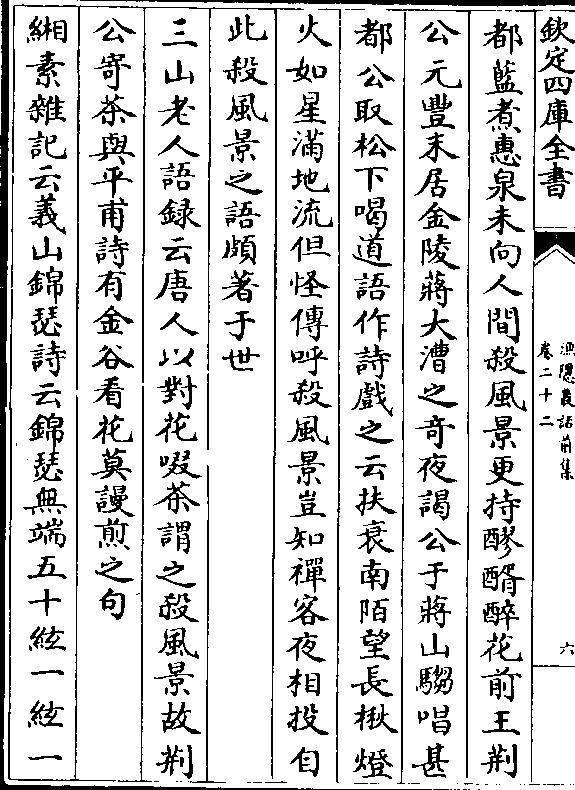 欽定四庫全書
漁隱叢話前集
卷二十二
六
都藍煮惠泉未向人間殺風景更持醪醑醉花前王荆
公元豐末居金陵蔣大漕之竒夜謁公于蔣山騶唱甚
都公取松下喝道語作詩戲之云扶衰南陌望長楸燈
火如星滿地流但怪傳呼殺風景豈知禪客夜相投自
此殺風景之語頗著于世
三山老人語録云唐人以對花啜茶謂之殺風景故荆
公寄茶與平甫詩有金谷看花莫謾煎之句
緗素雜記云義山錦瑟詩云錦瑟無端五十絃一絃一